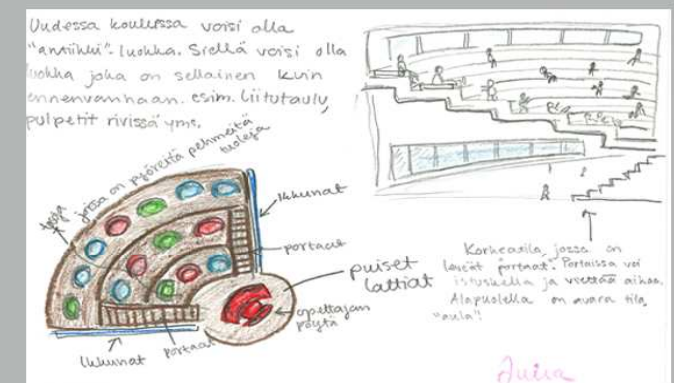 Uudessa koulussa voisi olla
"antiikki"-luokka. Siellä voisi olla
luokka joka on sellainen kuin
ennenvanhaan. esim. Liitutaulu,
pulpetit rivissä yms.
jossa on pyöreitä pehmeitä
tuoleja
Ikkunat
portaat
puiset
lattiat
opettajan
pöytä
Ikkunat
portaat
Korkea tila, jossa on
leveät "portaat". Portaissa voi
istuskella ja viettää aikaa.
Alapuolella on avara tila,
"aula".